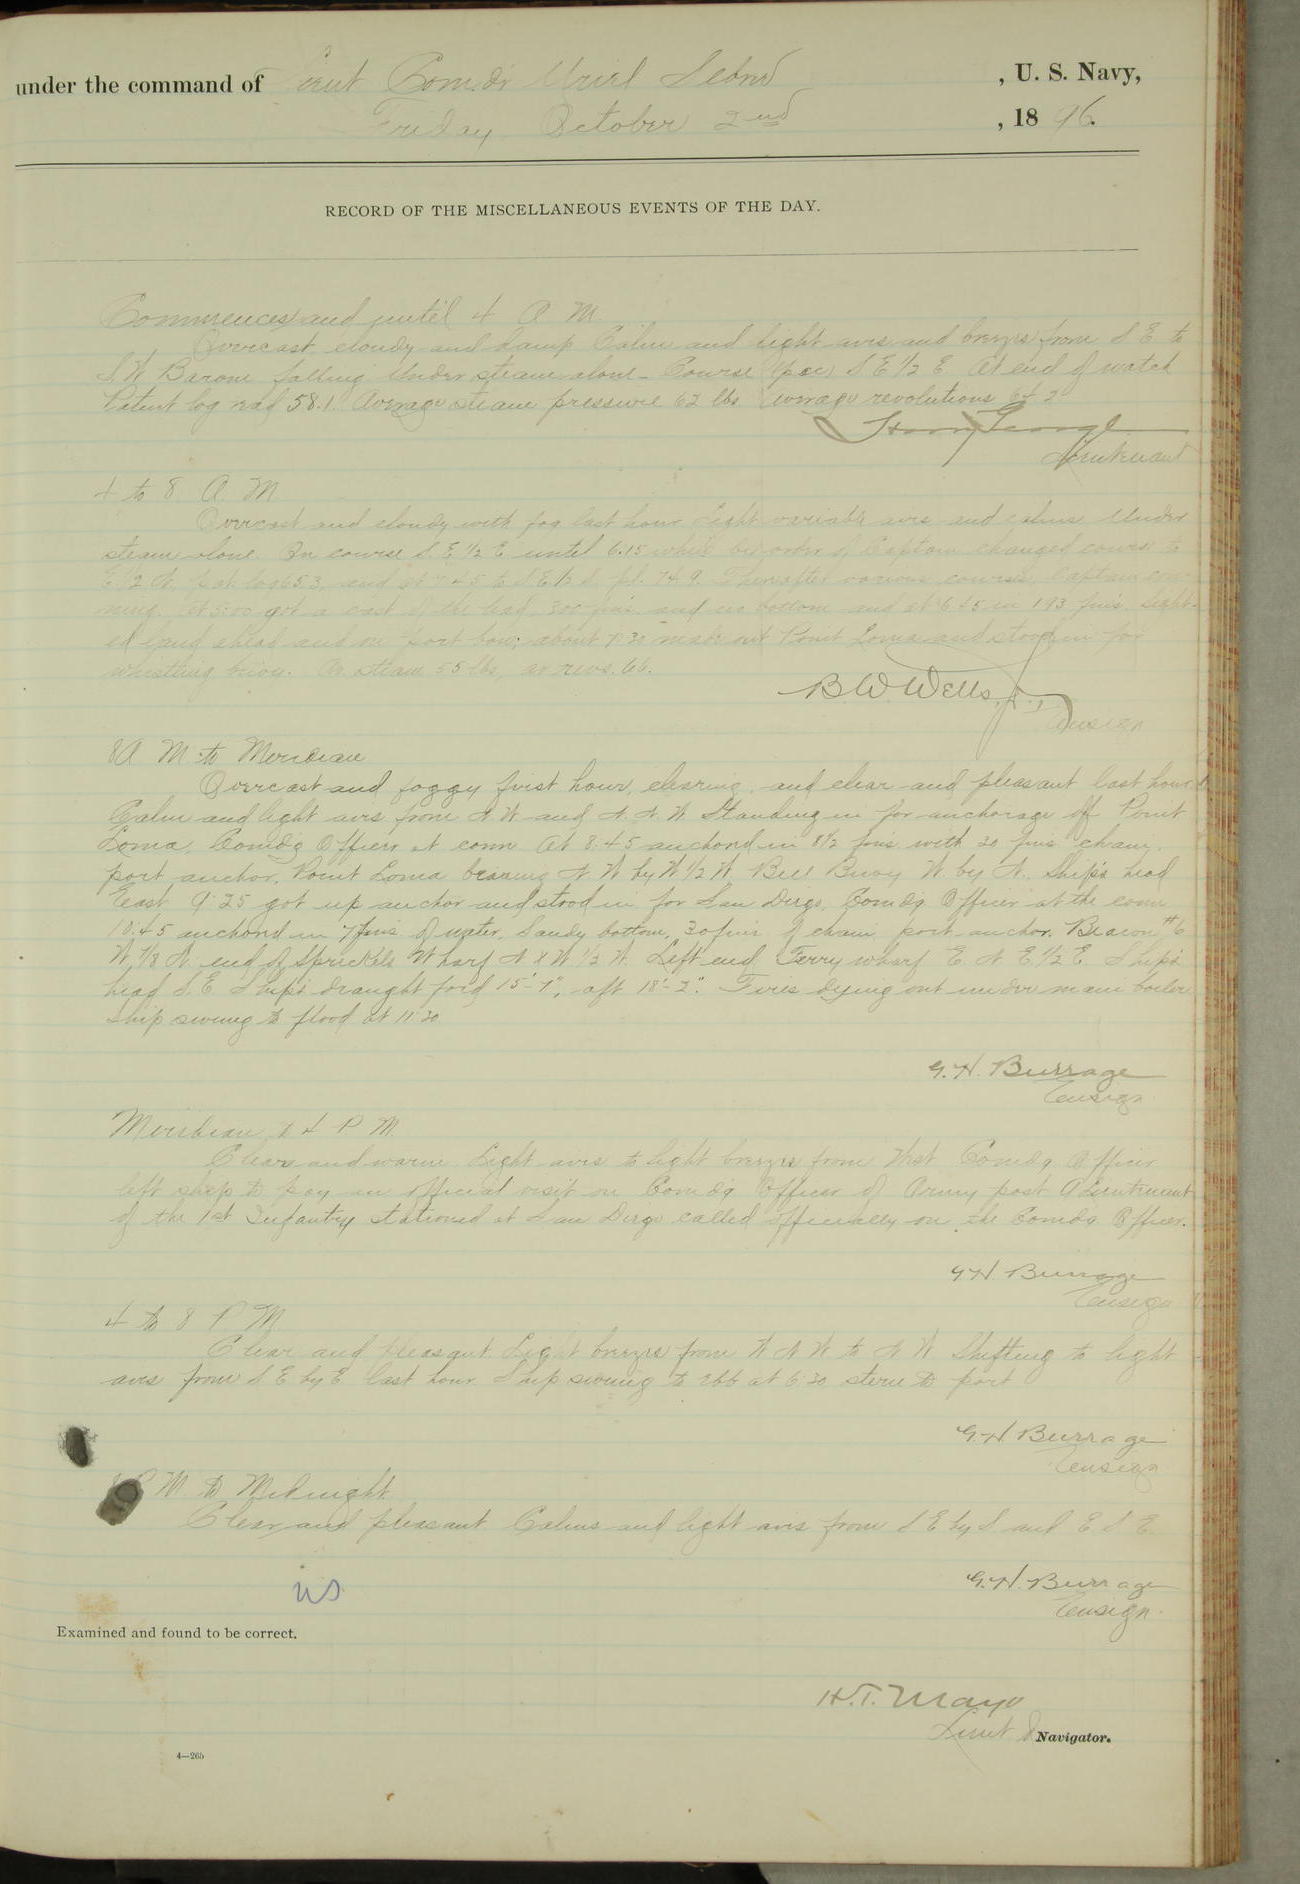 under the command of Lieut Comdr Uriel Sebree, U. S. Navy,
Friday October 2nd, 1896.
RECORD OF THE MISCELLANEOUS EVENTS OF THE DAY.
Commences and until 4 A M
Overcast cloudy and damp Calm and light airs and breezes from S E to
S W Barom falling Under steam alone - Course (psc) S E 1/2 E At end of watch
Patent log read 58.1 Average steam pressure 62 lbs average revolutions 64.2
Harry George
Lieutenant
4 to 8 A M
Overcast and cloudy with fog last hour Light variable airs and calms Under
steam alone On course S E 1/2 E until 6.15 when by order of Captain changed course to
pat log 65.3, and at 7 45 to S E 1/2 S p.l. 74.9. Thereafter various courses, Captain con-
ning. At 5:00 got a cast of the lead, 300 fms. and no bottom and at 6 45 in 193 fms. Sight-
ed land ahead and on port bow; about 7:30 made out Point Loma and stood in for
whistling buoy. Av. steam 55 lbs, av revs. 66.
B. W. Wells, Jr.
Ensign
8 A M to Meridian
Overcast and foggy first hour, clearing, and clear and pleasant last hour
Calm and light airs from N W and N. N. W Standing in for anchorage off Point
Loma. Comdg Officer at conn At 8:45 anchored in 8 1/2 fms with 30 fms chain,
port anchor. Point Loma bearing N W by W 1/2 W, Bell Buoy W. by N. Ship's head
East 9:25 got up anchor and stood in for San Diego, Comdg Officer at the conn
10:45 anchored in 7 fms of water, Sandy bottom, 30 fms of chain port anchor. Beacon #6
W 7/8 N. end of Spreckels Wharf N x W 1/2 W. Left end Ferry wharf E. N E 1/2 E Ship's
head S. E. Ship's draught ford 15'-7", aft 18'-2". Fires dying out under main boiler
Ship swung to flood at 11:30
G. H. Burrage
Ensign
Meridian to 4 P M
Clear and warm Light airs to light breezes from West Comdg Officer
left ship to pay an official visit on Comdg Officer of Army post A Lieutenant
of the 1st Infantry stationed at San Diego called officially on the Comdg Officer.
G H Burrage
Ensign
4 to 8 P M
Clear and pleasant Light breezes from W N W to N W Shifting to light
airs from S E by E last hour Ship swung to ebb at 6:30 stern to port
G. H. Burrage
Ensign
8 P M to Midnight
Clear and pleasant Calms and light airs from S E by S and E S E
G. H. Burrage
Ensign.
US
Examined and found to be correct.
H. T. Mayo
Lieut & Navigator.
4—265